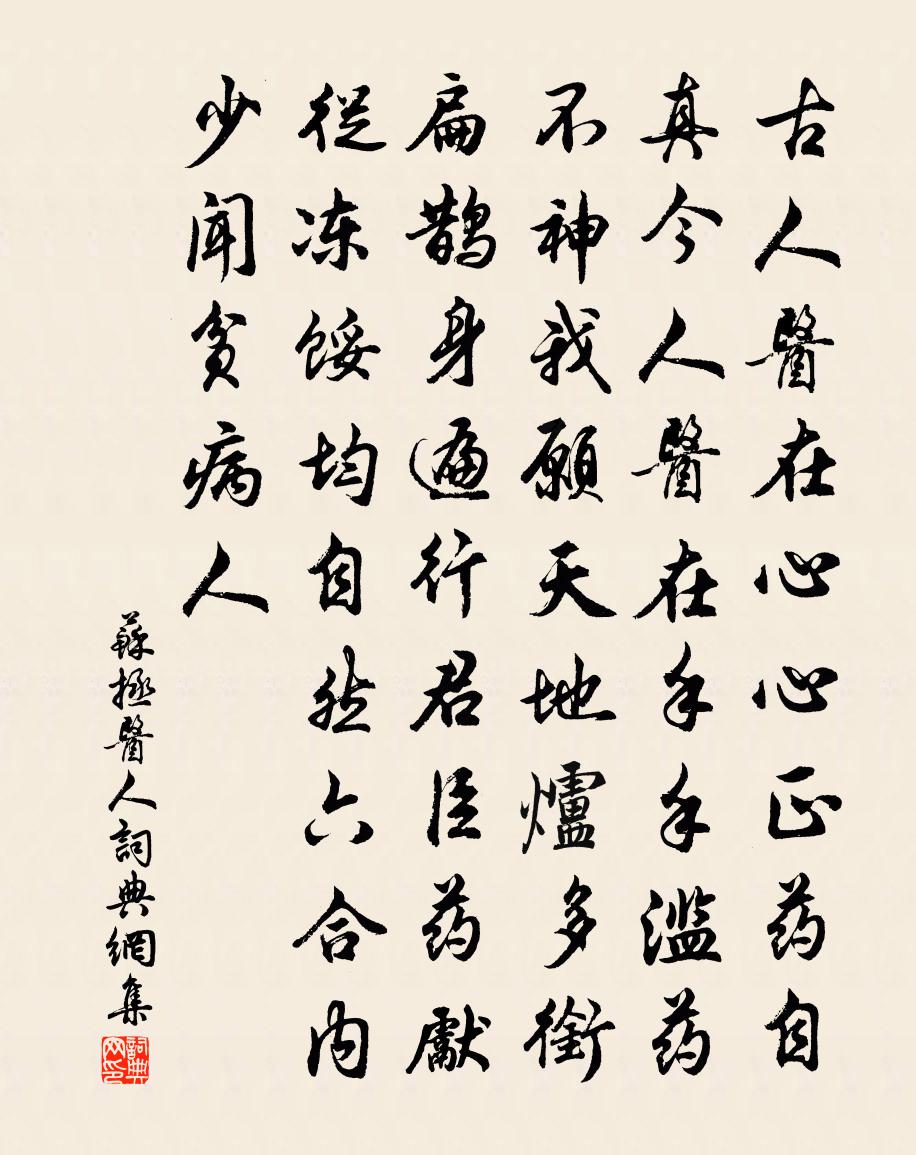 古人醫在心心正药自
真今人醫在手手滥药
不神我願天地爐多銜
扁鹊身遍行君臣药獻
從冻馁均自然六合内
少闻贫病人
蘇拯醫人詞典網集
詞典
网印